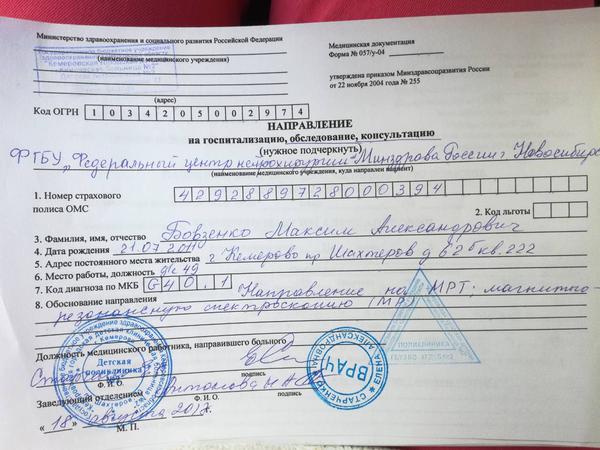 Министерство здравоохранения и социального развития Российской Федерации
(наименование медицинского учреждения)
(адрес)
Код ОГРН 1034205002974
Медицинская документация
Форма № 057/у-04
утверждена приказом Минздравсоцразвития России
от 22 ноября 2004 года № 255
НАПРАВЛЕНИЕ
на госпитализацию, обследование, консультацию
(нужное подчеркнуть)
ФГБУ „Федеральный центр нейрохирургии" Минздрава России г. Новосибирск
(наименование медицинского учреждения, куда направлен пациент)
1. Номер страхового 4292889728000394
полиса ОМС
2. Код льготы
3. Фамилия, имя, отчество Бовзенко Максим Александрович
4. Дата рождения 21.07.2011
5. Адрес постоянного места жительства г Кемерово пр Шахтеров д 62б кв. 222
6. Место работы, должность д/с 49
7. Код диагноза по МКБ G40.1
8. Обоснование направления Направление на МРТ; магнитно-
резонансную спектроскопию (МР)
Должность медицинского работника, направившего больного
Ф. И. О.
подпись
Заведующий отделением
Ф. И. О.
подпись
« 18 » августа 2017г.
М. П.
Детская
поликлиника
ВРАЧ
СТАРЧЕНКО ЕЛЕНА АЛЕКСАНДРОВНА
ПОЛИКЛИНИКА